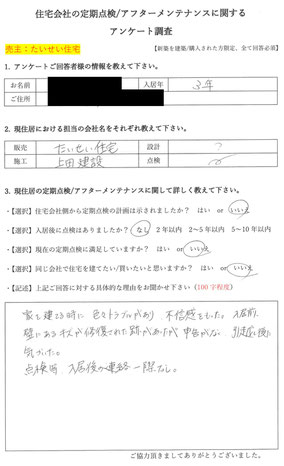 住宅会社の定期点検/アフターメンテナンスに関する
アンケート調査
売主：たいせい住宅
【新築を建築/購入された方限定、全て回答必須】
1. アンケートご回答者様の情報を教えて下さい。
お名前 入居年 3年
ご住所
2. 現住居における担当の会社名をそれぞれ教えて下さい。
販売 たいせい住宅 設計 ?
施工 上田建設 点検
3. 現住居の定期点検/アフターメンテナンスに関して詳しく教えて下さい。
・【選択】住宅会社側から定期点検の計画は示されましたか？ はい or いいえ
・【選択】入居後に点検はありましたか？ なし 2年以内 2～5年以内 5～10年以内
・【選択】現在の定期点検に満足していますか？ はい or いいえ
・【選択】同じ会社で住宅を建てたい/買いたいと思いますか？ はい or いいえ
・【記述】上記ご回答に対する具体的な理由をお聞かせ下さい（100字程度）
家を建る時に色々トラブルがあり、不信感をもった。入居前、
壁にあるキズが修復された跡があったが申告がない 引越し後に
気づいた。
点検時、入居後の連絡一際なし。
ご協力頂きましてありがとうございました。